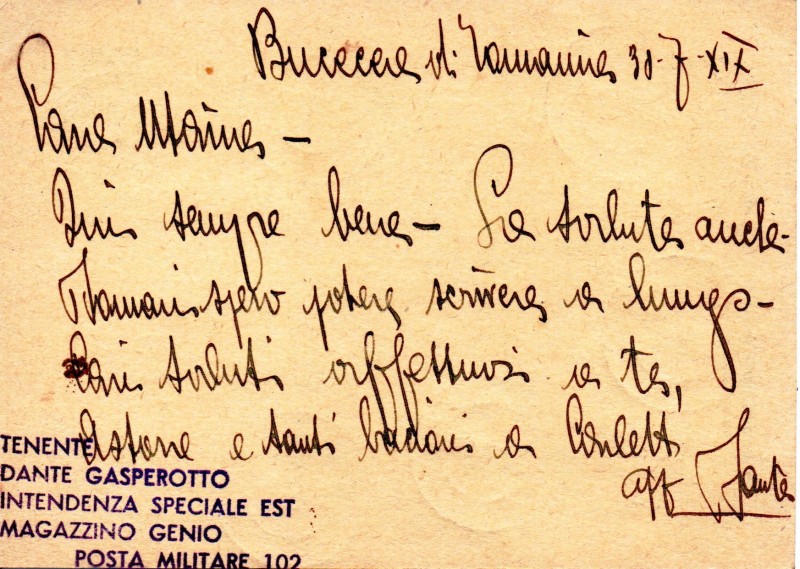 di Romania 30-7-XIX
Cara
Qui sempre bene - La salute anche -
Domani spero potere scrivere a lungo -
Cari saluti affettuosi a te,
e tanti bacioni a
aff Dante
TENENTE
DANTE GASPEROTTO
INTENDENZA SPECIALE EST
MAGAZZINO GENIO
POSTA MILITARE 102